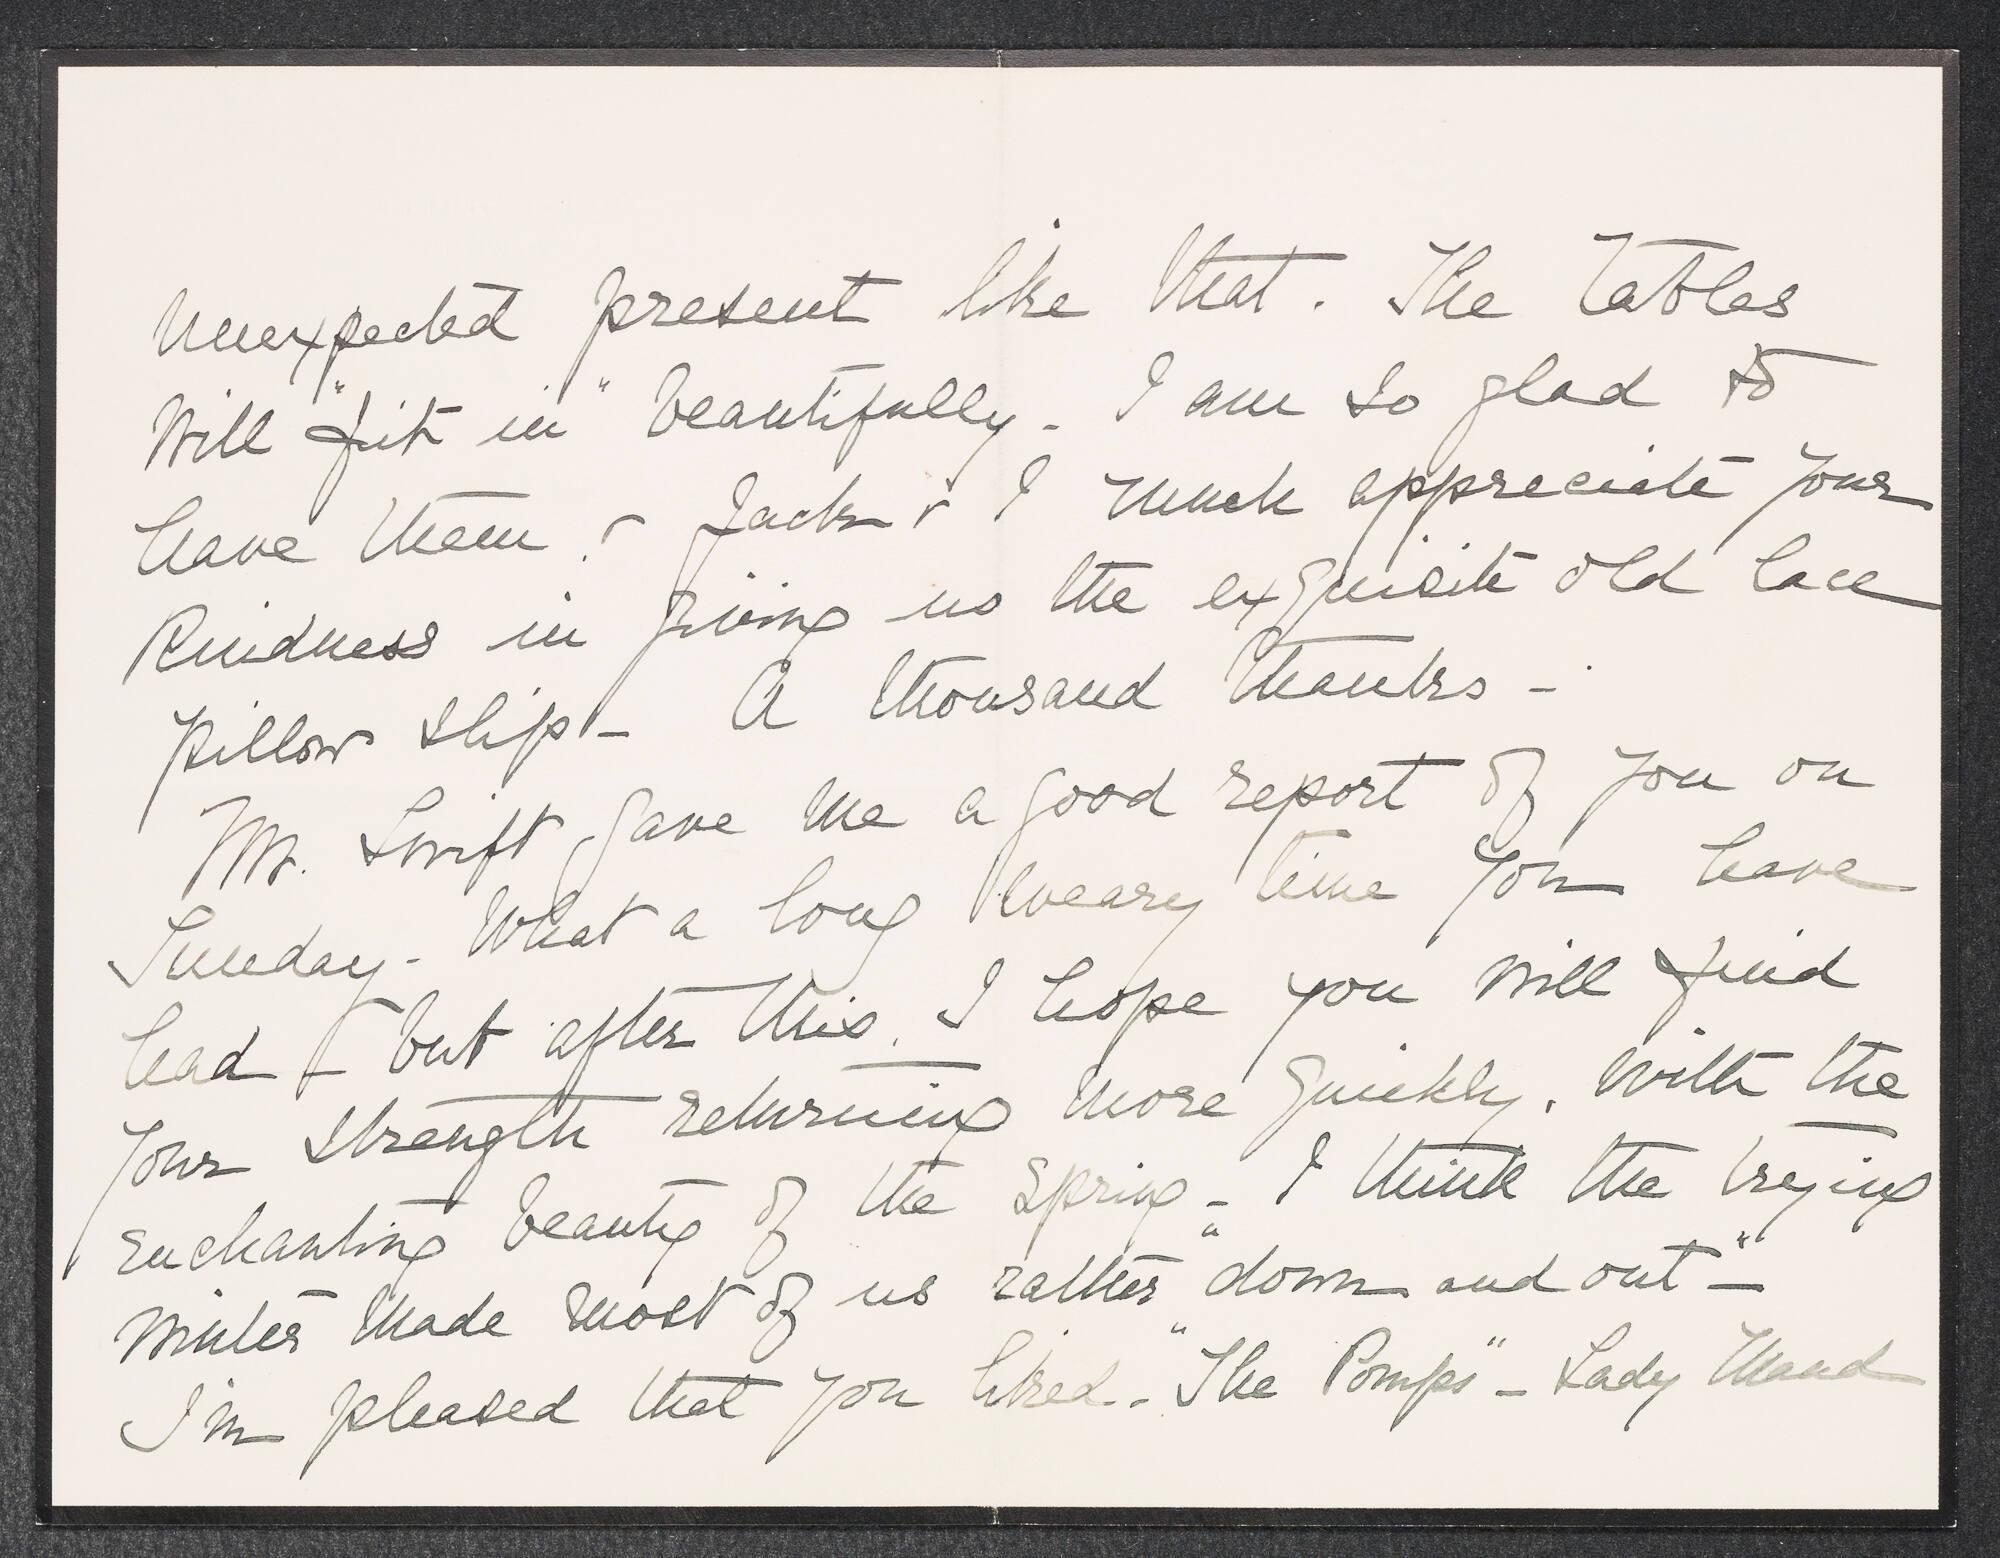 unexpected present like that. The tables
will "fit in" beautifully - I am so glad to
have them. & Jack & I much appreciate your
kindness in giving us the exquisite old lace
pillow slip - A thousand thanks -
Mr. Swift gave me a good report of you on
Sunday - What a long weary time you have
had - but after this, I hope you will find
your strength returning more quickly, with the
enchanting beauty of the Spring - I think the trying
winter made most of us rather "down and out" -
I'm pleased that you liked - "The Pomps" - Lady Maud